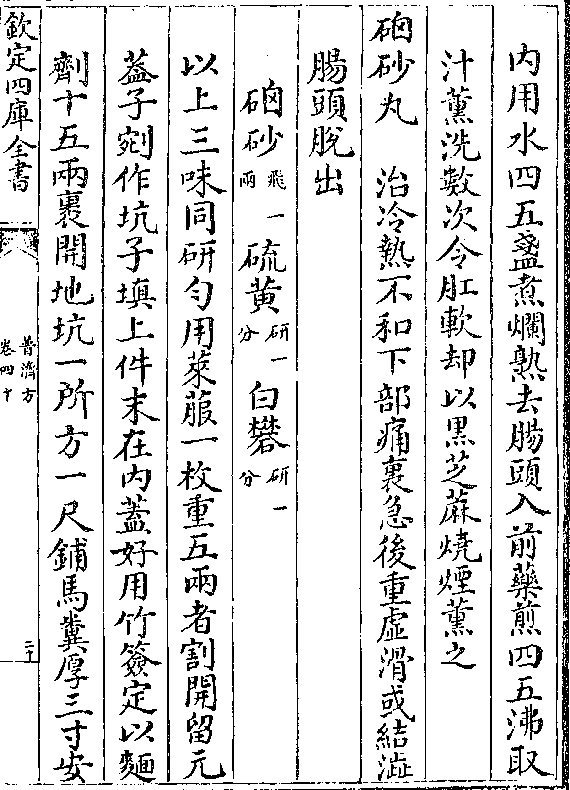 内用水四五盞煮爛熟去腸頭入前藥煎四五沸取
汁薰洗數次令肛軟却以黒芝蔴燒煙薰之
硇砂丸　治冷熱不和下部痛裏急後重虛滑或結澁
腸頭脫出
硇砂飛一兩　硫黄研一分　白礬研一分
以上三味同研勻用萊菔一枚重五兩者割開留元
葢子剜作坑子填上件末在内蓋好用竹簽定以麵
劑十五兩裹開地坑一所方一尺鋪馬糞厚三寸安
欽定四庫全書
普濟方
卷四十